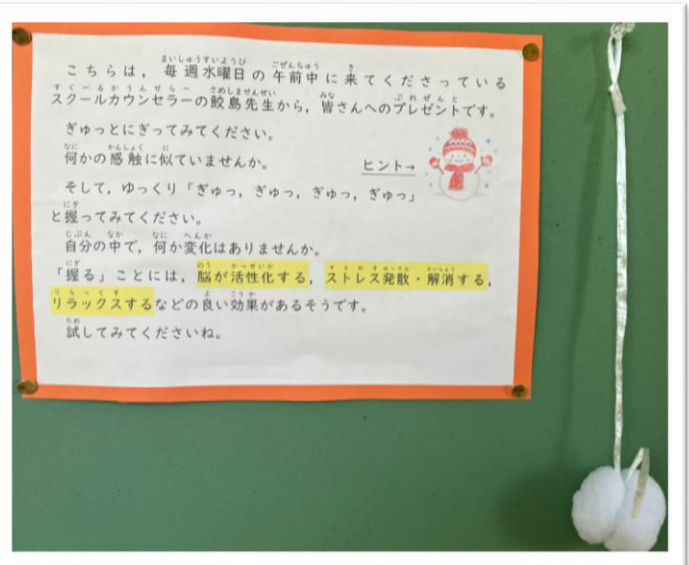 こちらは，毎週水曜日の午前中に来てくださっている
スクールカウンセラーの鮫島先生から，皆さんへのプレゼントです。
ぎゅっとにぎってみてください。
何かの感触に似ていませんか。
ヒント→
そして，ゆっくり「ぎゅっ，ぎゅっ，ぎゅっ，ぎゅっ」
と握ってみてください。
自分の中で，何か変化はありませんか。
「握る」ことには，脳が活性化する，ストレス発散・解消する，
リラックスするなどの良い効果があるそうです。
試してみてくださいね。